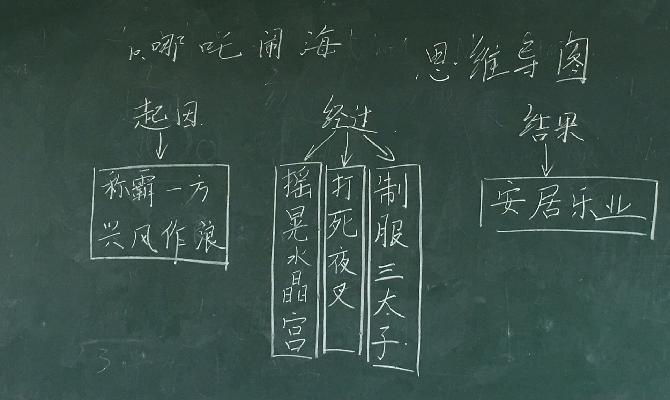 哪吒闹海 思维导图
起因
称霸一方
兴风作浪
经过
摇晃水晶宫
打死夜叉
制服三太子
结果
安居乐业